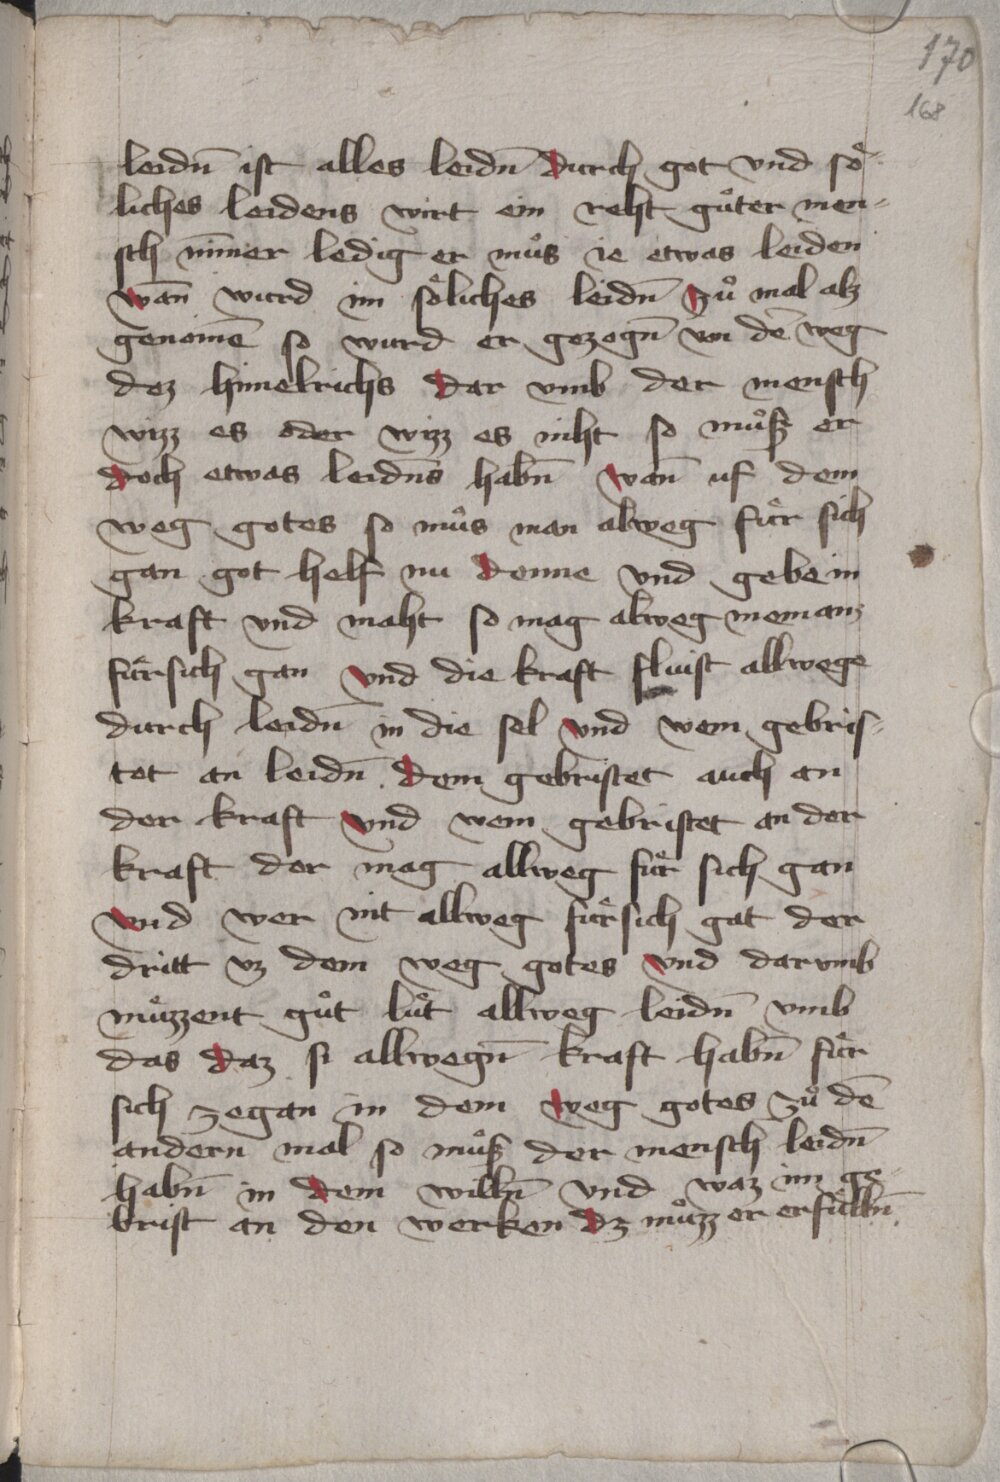 170
168
leidn̄ ist alles leidn̄ durch got vnd soͤ-
liches leidens wirt ein reht guͦter men-
sch nīmer ledig er muͦs ie etwas leiden
wan̄ wurd im soͤliches leidn̄ zuͦ mal abz
genomē so wurd er gezogn̄ von dē weg
dez himelrichs dar vmb der mensch
wizz es oder wizz es niht so muͦß er
doch etwas leidn̄s habn̄ wan̄ uf dem
weg gotes so muͦs man alweg fuͤr sich
gan got helf nu denne vnd gebe in
kraft vnd maht so mag alweg niemanz
fuͤrsich gan vnd die kraft fluist allwege
durch leidn̄ in die sel vnd wem gebris-
tet an leidn̄ dem gebristet auch an
der kraft vnd wem gebristet an der
kraft der mag allweg fuͤr sich gan
vnd wer nit allweg fuͤrsich gat der
dritt vz dem weg gotes vnd darvmb
muͤzzent guͦt luͤt allweg leidn̄ vmb
das daz si allwegn̄ kraft habn̄ fuͤr
sich zegan in dem weg gotes zuͦ dē
andern mal so muͦß der mensch leidn̄
habn̄ in dem willn̄ vnd waz im ge-
brist an den werken dz muͦzz er erfuͤlln̄